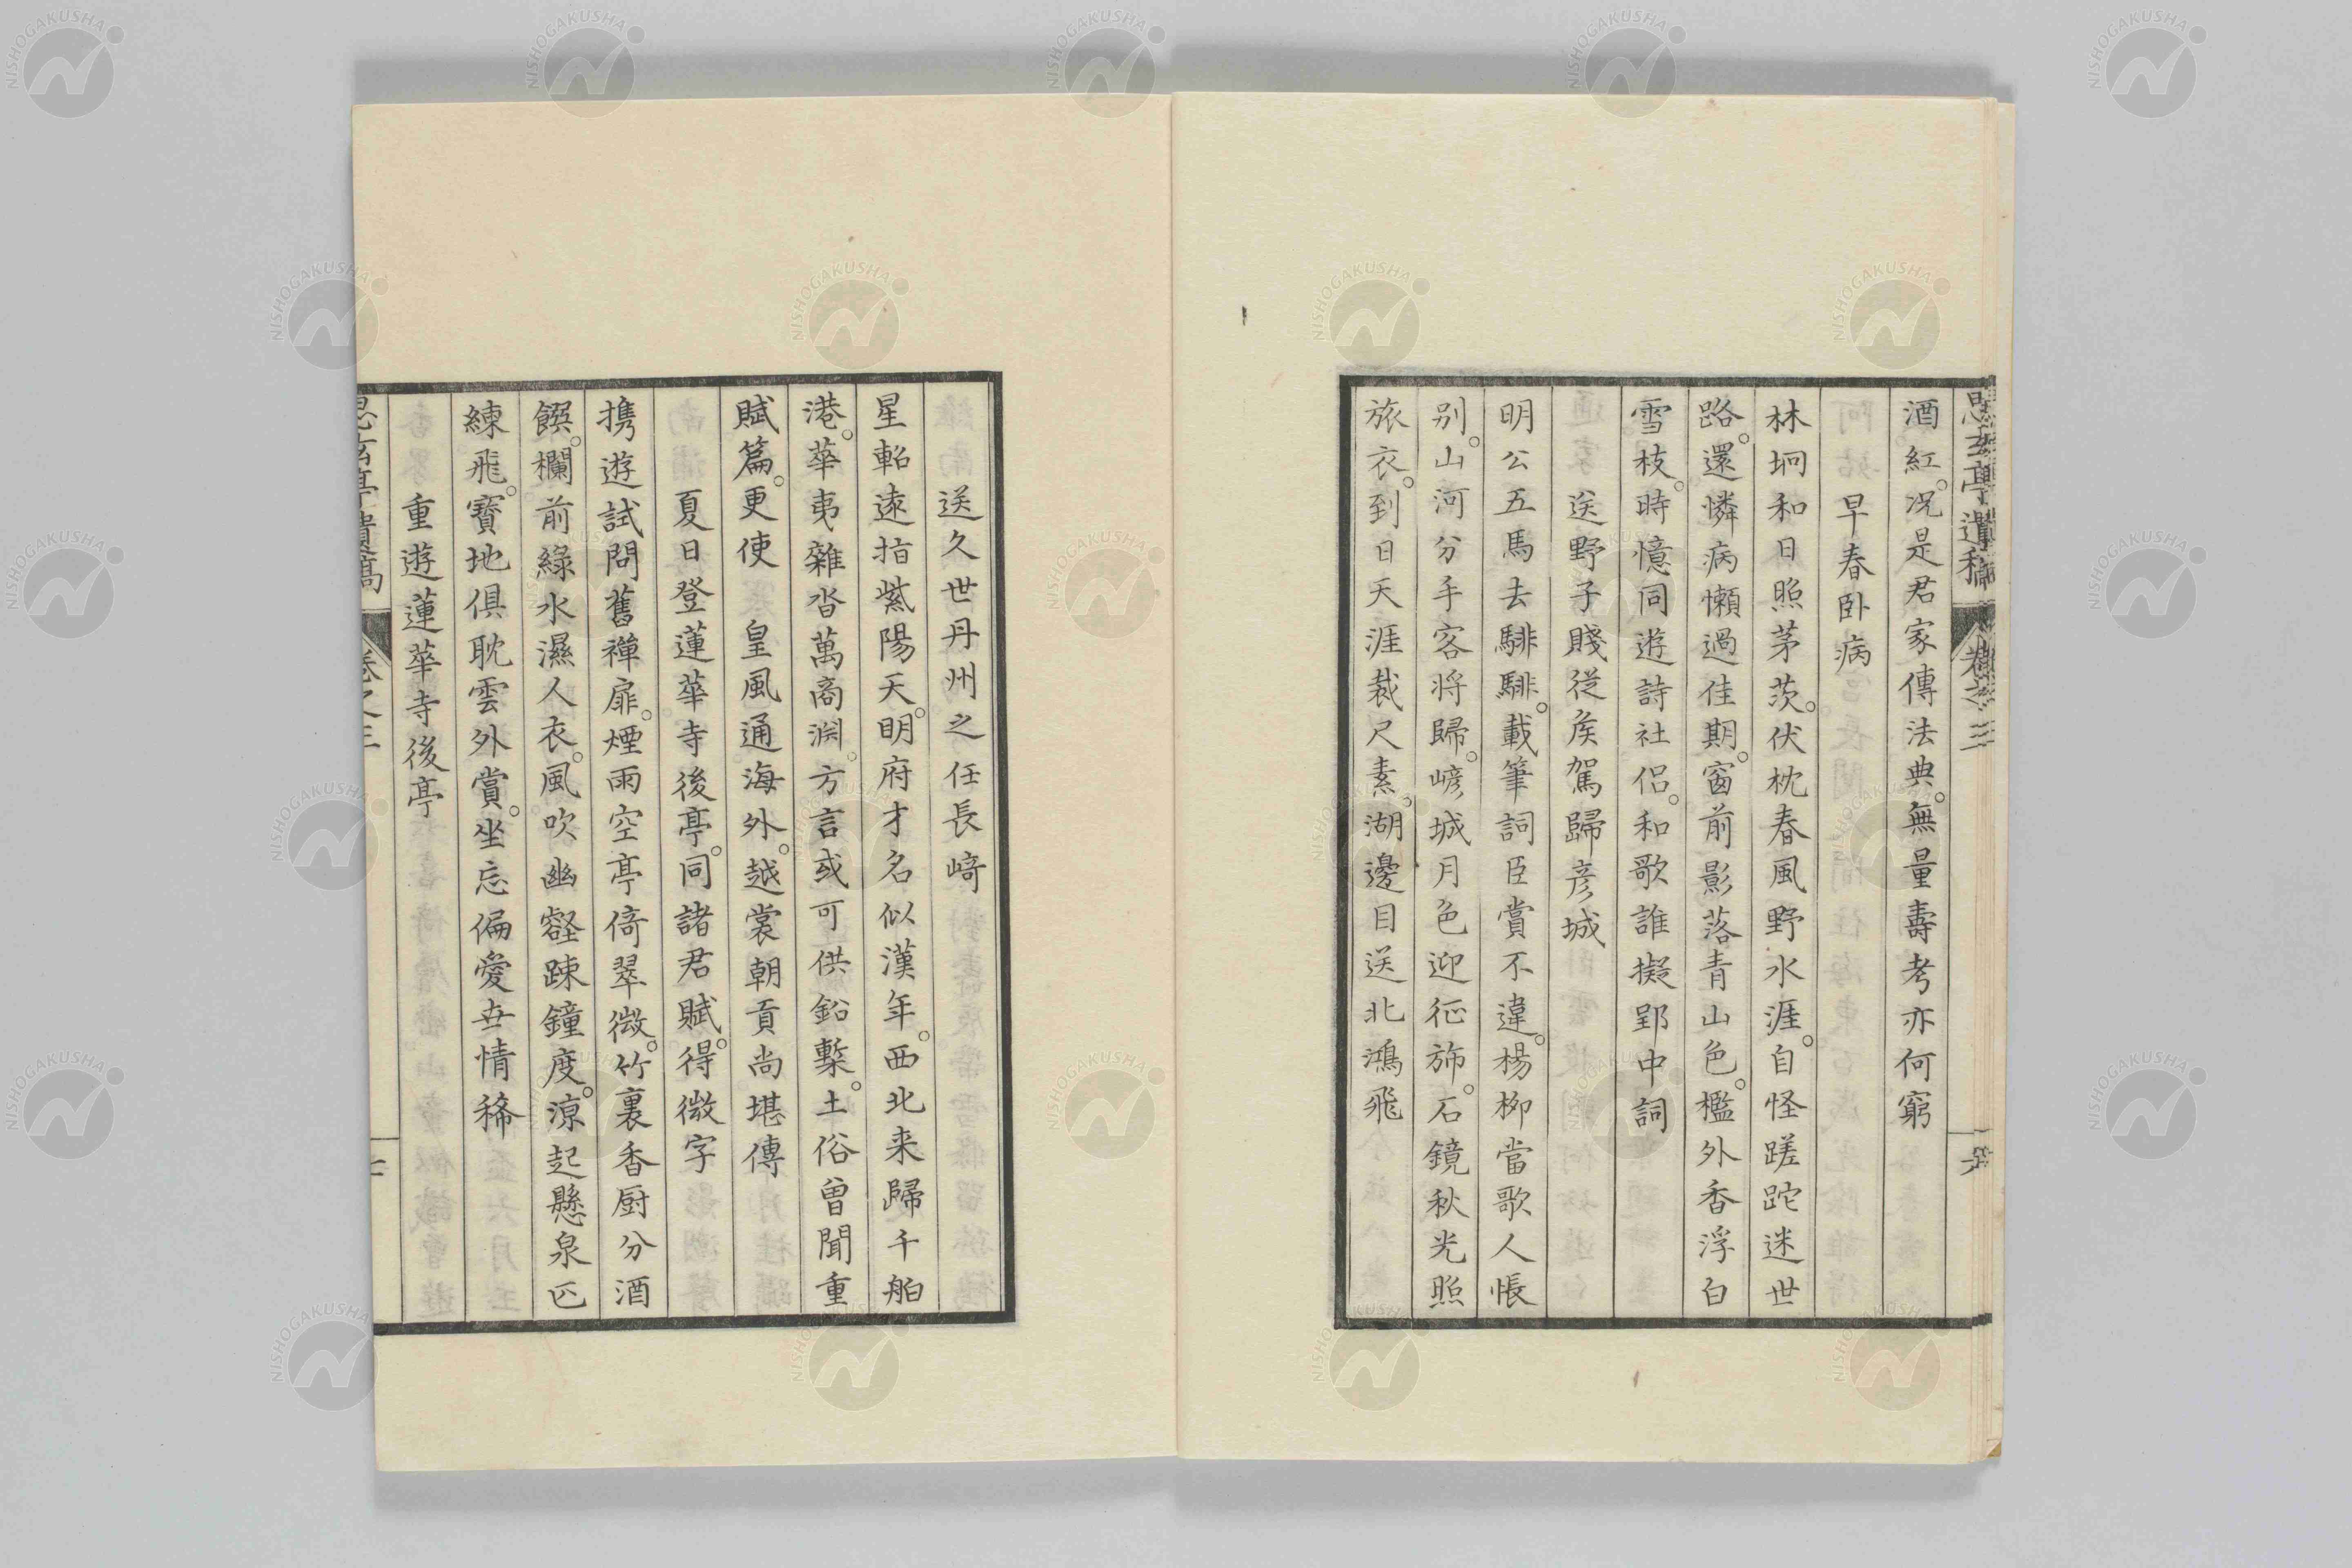 思玄亭遺稿 卷之三
酒紅。况是君家傳法典。無量壽考亦何窮
早春卧病
林坰和日照茅茨。伏枕春風野水涯。自怪蹉跎迷世
路。還憐病懶過佳期。窗前影落青山色。檻外香浮白
雪枝。時憶同遊詩社侶。和歌誰擬郢中詞
送野子賤從矦駕歸彦城
明公五馬去騑騑。載筆詞臣賞不違。楊柳當歌人悵
別。山河分手客將歸。嵃城月色迎征斾。石鏡秋光照
旅衣。到日天涯裁尺素。湖邊目送北鴻飛
送久世丹州之任長﨑
星軺遠指紫陽天。明府才名似漢年。西北来歸千舶
港。華夷雜沓萬商淵。方言或可供鉛槧。土俗曾聞重
賦篇。更使 皇風通海外。越裳朝貢尚堪傳
夏日登蓮華寺後亭。同諸君賦。得微字
携遊試問舊禪扉。煙雨空亭倚翠微。竹裏香厨分酒
饌。欄前綠水濕人衣。風吹幽壑踈鐘度。凉起懸泉匹
練飛。寶地俱耽雲外賞。坐忘偏愛世情稀
重遊蓮華寺後亭
思玄亭遺稿 卷之三
NISHOGAKUSHA